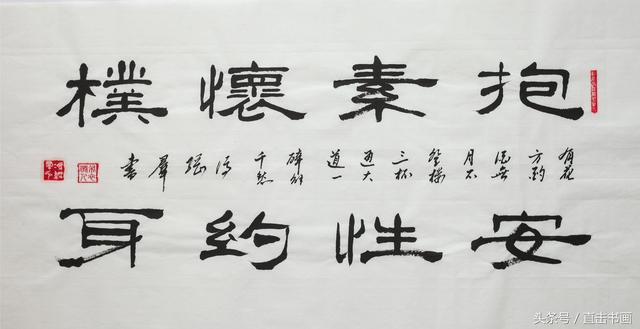 抱素懷樸
有花
方酌
酒無
月不
登樓
三杯
通大
道一
醉解
千愁
書
安性約身
头条号／直击书画